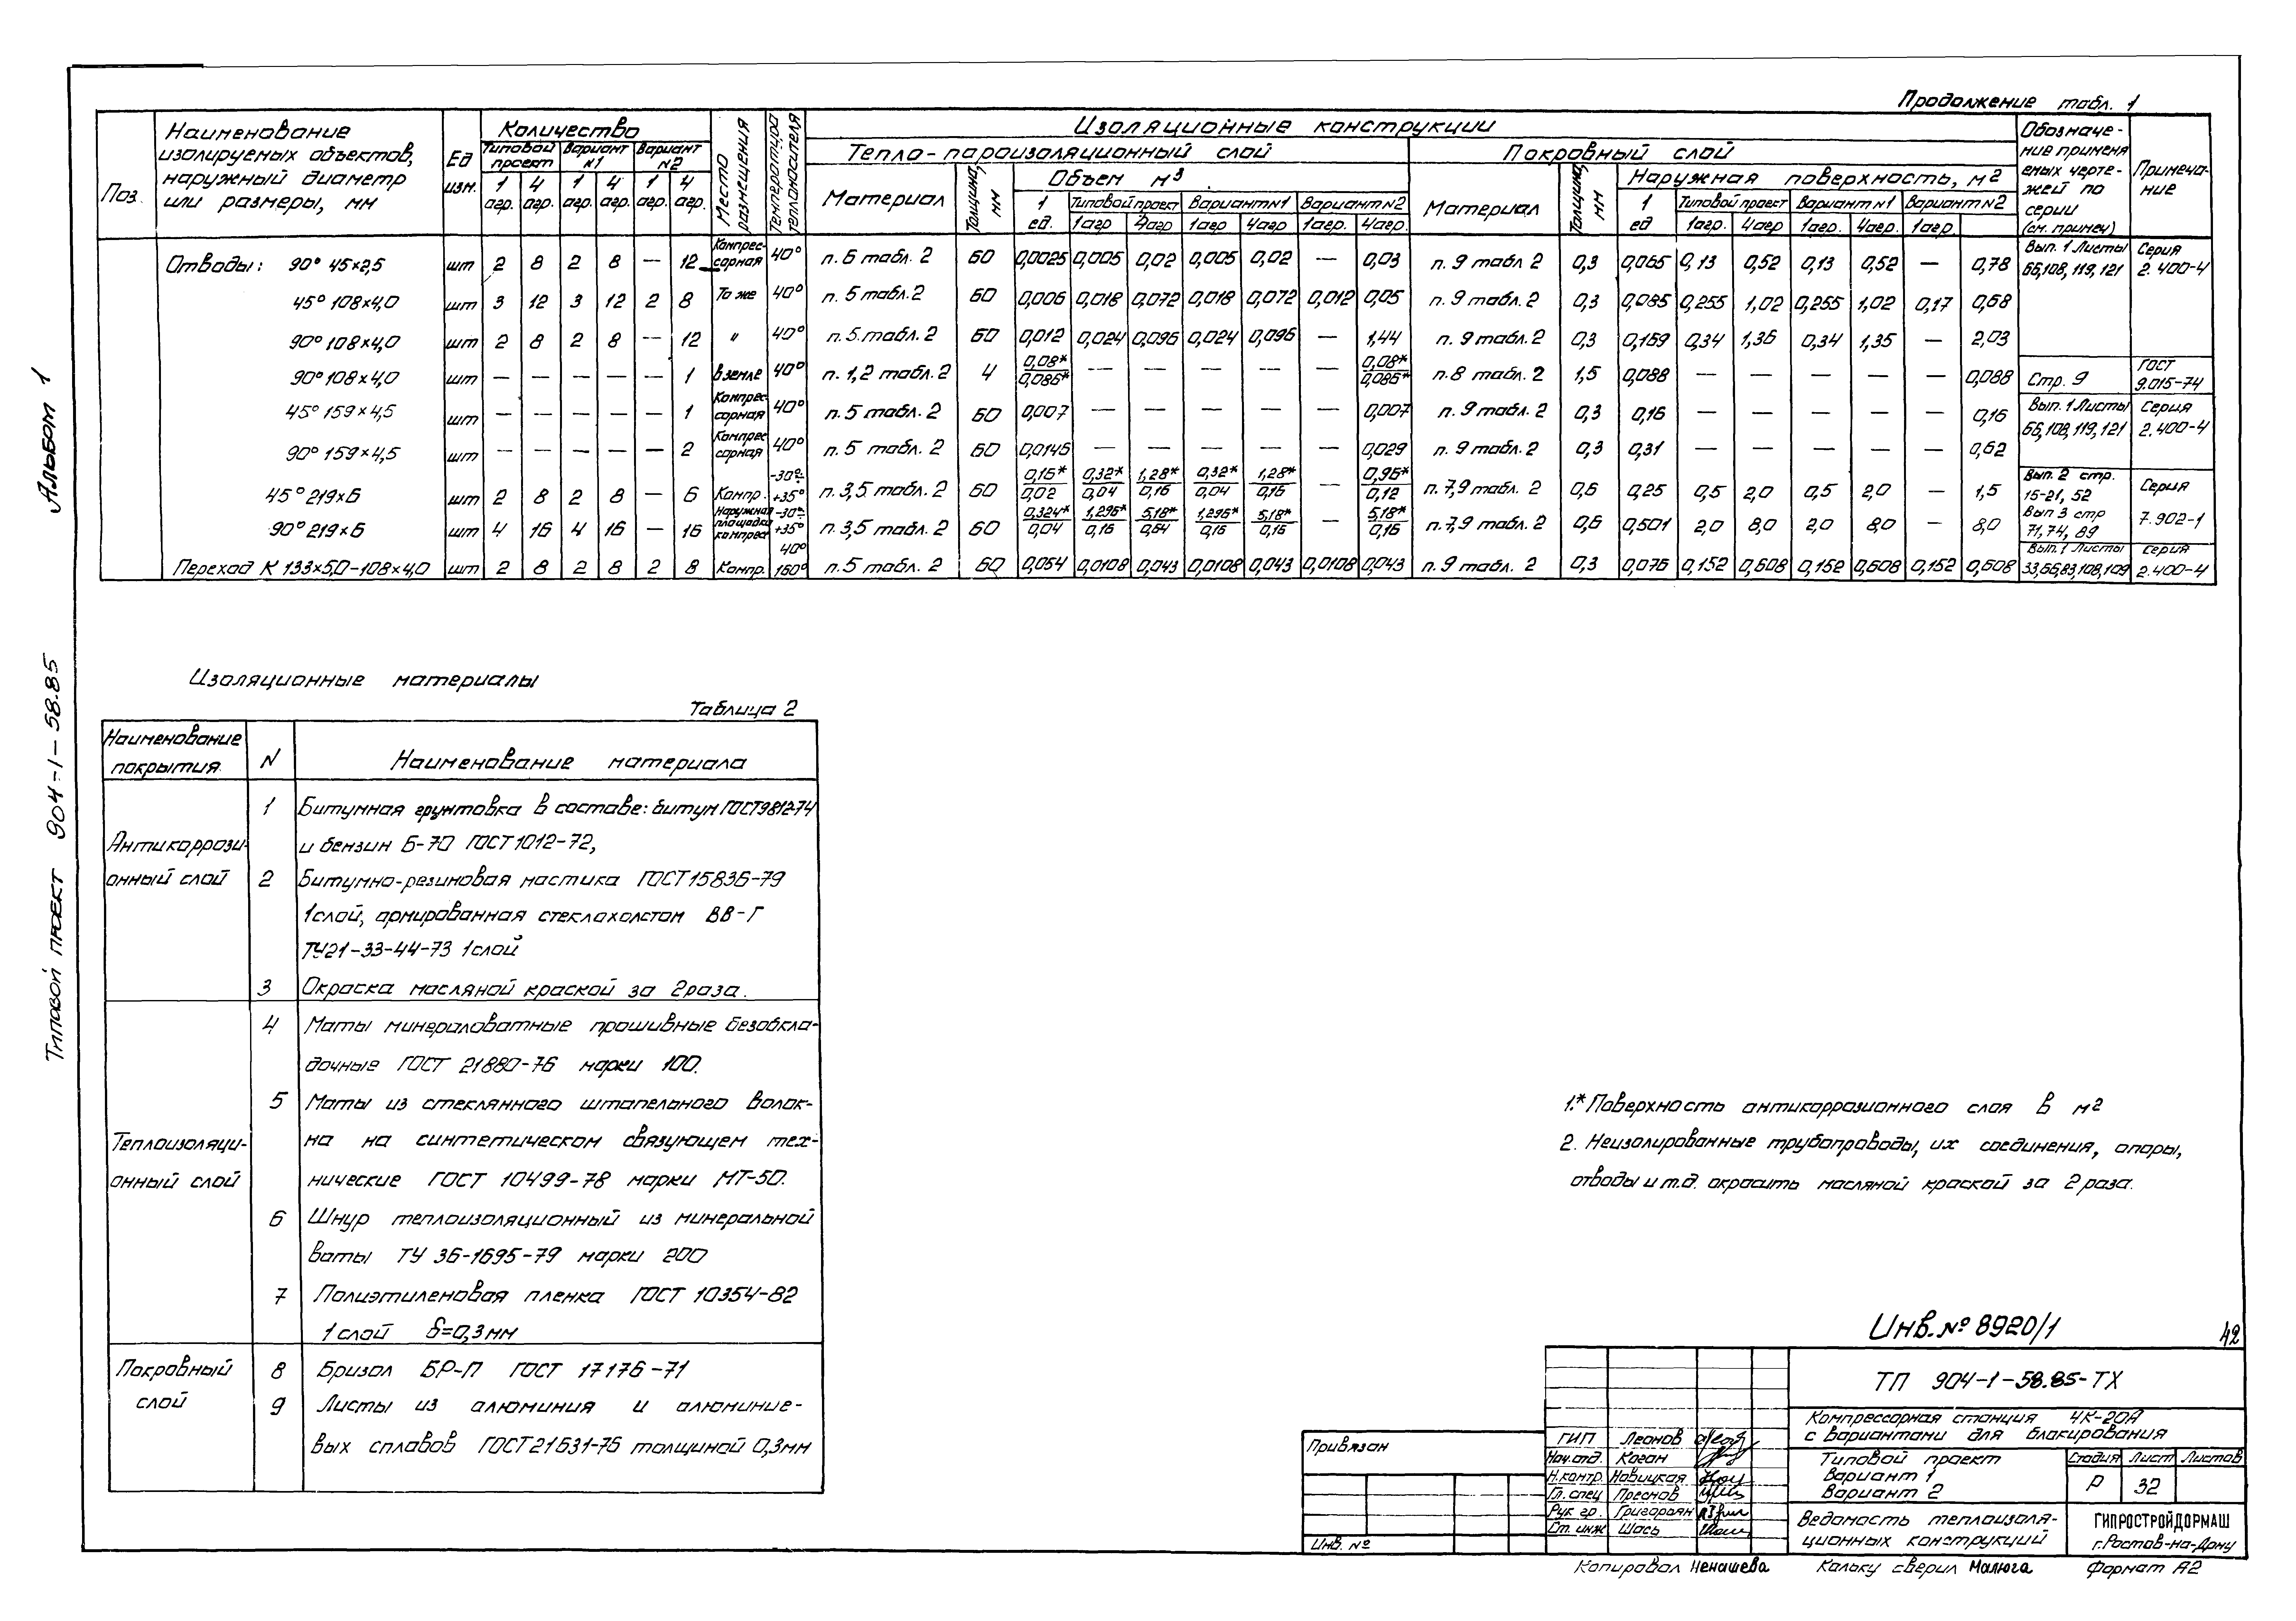 Продолжение табл. 1
Поз. Наименование изолируемых объектов, наружный диаметр или размеры, мм Ед. изм. Количество Место размещения Температура теплоносителя Изоляционные конструкции Обозначе-ние применя еных черте-жей по серии (см. примеч) Примеча-ние
Типовой проект Вариант №1 Вариант №2 Тепло-пароизоляционный слой Покровный слой
1 агр. 4 агр. 1 агр. 4 агр. 1 агр. 4 агр. Материал Толщина, мм Объем м3 Материал Толщина, мм Наружная поверхность, м2
1 ед. Типовой проект Вариант №1 Вариант №2 1 ед Типовой проект Вариант №1 Вариант №2
1агр 4агр 1агр. 4агр 1агр. 4агр. 1агр. 4агр 1агр. 4агр. 1агр.
Отводы: 90° 45×2,5 шт 2 8 2 8 — 12 Компрес-сорная 40° п. 6 табл. 2 60 0,0025 0,005 0,02 0,005 0,02 — 0,03 п. 9 табл 2 0,3 0,065 0,13 0,52 0,13 0,52 — 0,78 Вып. 1 Листы 66,108,119,121 Серия 2.400-4
45° 108×4,0 шт 3 12 3 12 2 8 То же 40° п. 5 табл. 2 60 0,006 0,018 0,072 0,018 0,072 0,012 0,05 п. 9 табл. 2 0,3 0,085 0,255 1,02 0,255 1,02 0,17 0,68
90° 108×4,0 шт 2 8 2 8 — 12 " 40° п. 5. табл. 2 60 0,012 0,024 0,096 0,024 0,096 — 1,44 п. 9 табл. 2 0,3 0,169 0,34 1,36 0,34 1,35 — 2,03
90° 108×4,0 шт — — — — — 1 в земле 40° п. 1,2 табл. 2 4 0,08*/0,086* — — — — — 0,08*/0,086* п. 8 табл. 2 1,5 0,088 — — — — — 0,088 Стр. 9 ГОСТ 9.015-74
45° 159×4,5 шт — — — — — 1 Компрес-сорная 40° п. 5 табл. 2 60 0,007 — — — — — 0,007 п. 9 табл. 2 0,3 0,16 — — — — — 0,16 Вып. 1 Листы 66,108,119,121 Серия 2.400-4
90° 159×4,5 шт — — — — — 2 Компрес-сорная 40° п. 5 табл. 2 60 0,0145 — — — — — 0,029 п. 9 табл. 2 0,3 0,31 — — — — — 0,62
45° 219×6 шт 2 8 2 8 — 6 Компр. -30°÷+35° п. 3,5 табл. 2 60 0,16*/0,02 0,32*/0,04 1,28*/0,16 0,32*/0,04 1,28*/0,16 — 0,96*/0,12 п. 7,9 табл. 2 0,6 0,25 0,5 2,0 0,5 2,0 — 1,5 Вып. 2 стр. 15-21, 52 Серия
90° 219×6 шт 4 16 4 16 — 16 Наружная площадка компрес -30°÷+35° п. 3,5 табл. 2 60 0,324*/0,04 1,296*/0,16 5,18*/0,64 1,296*/0,16 5,18*/0,16 — 5,18*/0,16 п. 7,9 табл. 2 0,6 0,501 2,0 8,0 2,0 8,0 — 8,0 Вып 3 стр 71,74, 89 7.902-1
Переход К 133×5,0-108×4,0 шт 2 8 2 8 2 8 Компр. 40° 160° п. 5 табл. 2 60 0,054 0,0108 0,043 0,0108 0,043 0,0108 0,043 п. 9 табл. 2 0,3 0,076 0,152 0,608 0,152 0,608 0,152 0,608 Вып. 1 Листы 33,66,83,108,109 Серия 2.400-4
Изоляционные материалы
Таблица 2
Наименование покрытия N Наименование материала
Антикоррози-онный слой
1 Битумная грунтовка в составе: битум ГОСТ9812-74
и бензин Б-70 ГОСТ 1012-72,
2 Битумно-резиновая мастика ГОСТ 15836-79
1слой, армированная стеклохолстом ВВ-Г
ТУ21-33-44-73 1слой
3 Окраска масляной краской за 2раза.
Теплоизоляци-онный слой
4 Маты минераловатные прошивные безобкла-
дочные ГОСТ 21880-76 марки 100.
5 Маты из стеклянного штапельного волок-
на на синтетическом связующем тех-
нические ГОСТ 10499-78 марки МТ-50.
6 Шнур теплоизоляционный из минеральной
ваты ТУ 36-1695-79 марки 200
7 Полиэтиленовая пленка ГОСТ 10354-82
1 слой δ=0,3мм
Покровный слой
8 Бризол БР-П ГОСТ 17176-71
9 Листы из алюминия и алюминие-
вых сплавов ГОСТ 21631-76 толщиной 0,3мм
1.* Поверхность антикоррозионного слоя в м2
2. Неизолированные трубопроводы, их соединения, опоры,
отводы и т.д. окрасить масляной краской за 2 раза.
Инв. № 8920/1
42
ТП 904-1-58.85-ТХ
Компрессорная станция 4К-20А
с вариантами для блокирования
Типовой проект
Вариант 1
Вариант 2
Стадия Лист Листов
Р 32
Ведомость теплоизоля-
ционных конструкций
ГИПРОСТРОЙДОРМАШ
г.Ростов-на-Дону
ГИП Леонов
Нач.отд. Коган
Н.контр. Новицкая
Гл. спец Преснов
Рук гр. Григорьян
Ст. инж Шась
Привязан
Инв. №
Копировал Ненашева Кальку сверил Малюга Формат А2
Альбом 1
Типовой проект 904-1-58.85